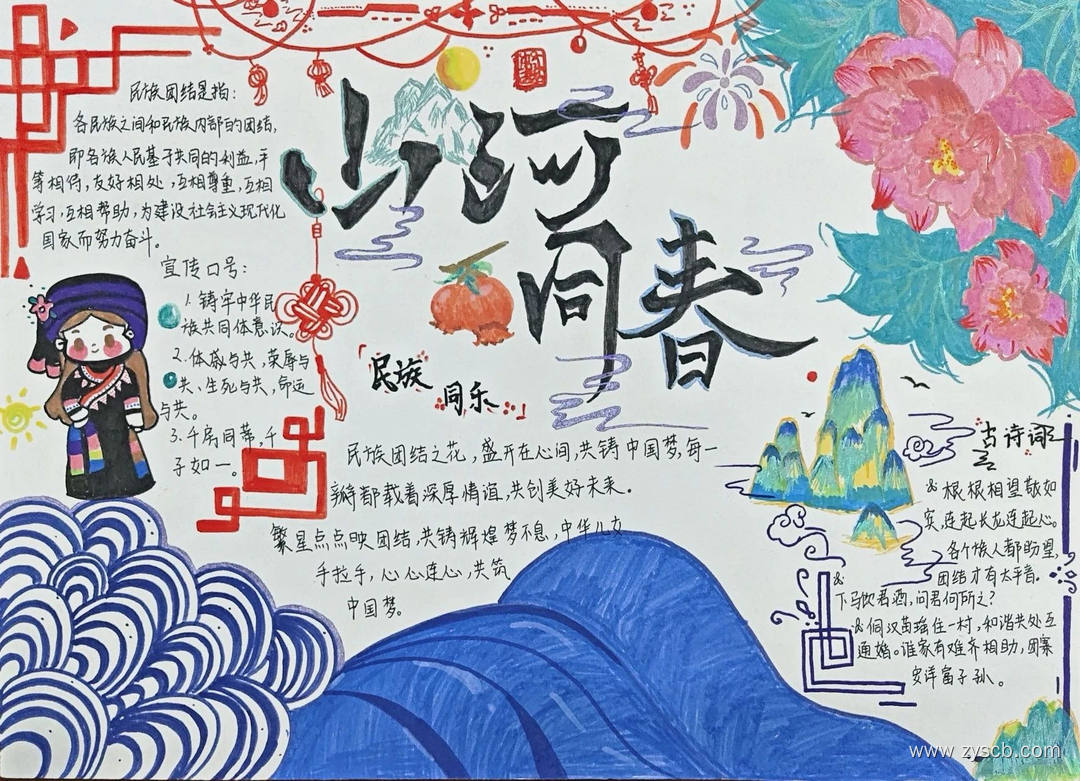 山河
同春
「民族
同乐」
民族团结是指:
各民族之间和民族内部的团结,
即各族人民基于共同的利益,平
等相待,友好相处,互相尊重,互相
学习,互相帮助,为建设社会主义现代化
国家而努力奋斗。
宣传口号:
1.铸牢中华民
族共同体意识。
2.休戚与共,荣辱与
共、生死与共,命运
与共。
3.千房同蒂,千
子如一。
民族团结之花,盛开在心间,共铸中国梦,每一
瓣都载着深厚情谊,共创美好未来。
繁星点点映团结,共铸辉煌梦不息,中华儿女
手拉手,心心连心,共筑
中国梦。
古诗词
根根相望敬如
宾,连起长龙连起心。
各个族人都盼望,
团结才有太平音。
下马饮君酒,问君何所之?
侗汉苗瑶住一村,和谐共处互
通婚。谁家有难齐相助,团寨
安详富子孙。
www.zyscb.com